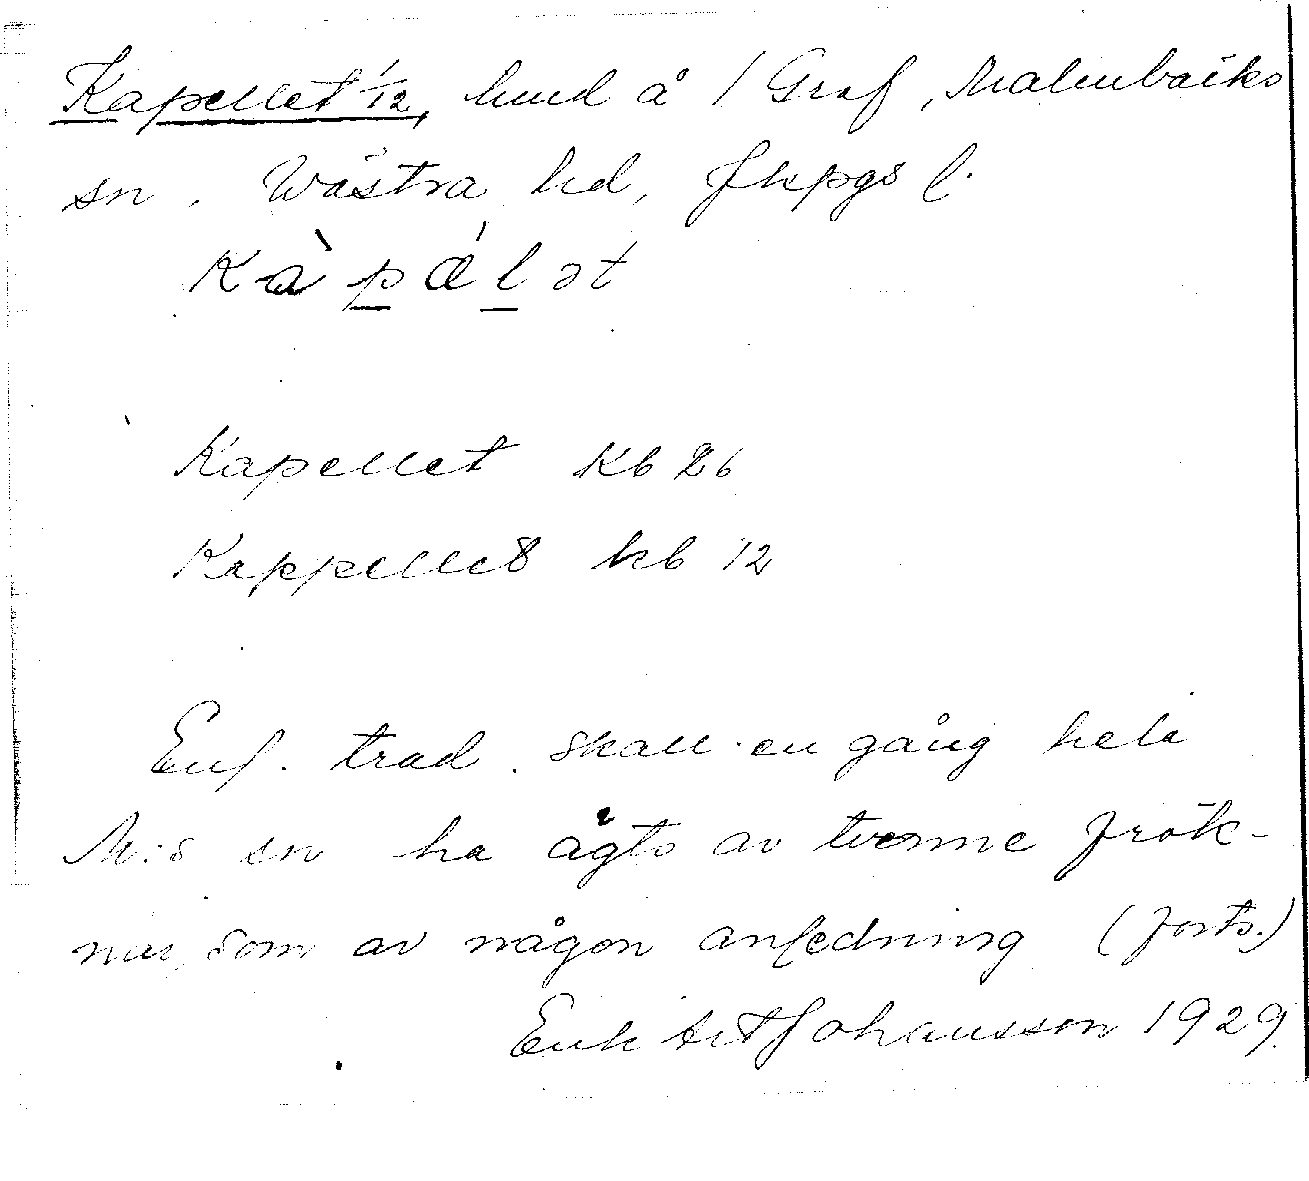 Kapellet 1/12, hmd å 1 Graf, Malmbäcks
sn. Västra hd, Jkpgs l.
Kàpǽlət
Kapellet Kb 26
Kappellet kb 12
Enl. trad. skall en gång hela
M:s sn ha ägts av tvenne frök-
nar, som av någon anledning (forts.)
Johansson 1929.